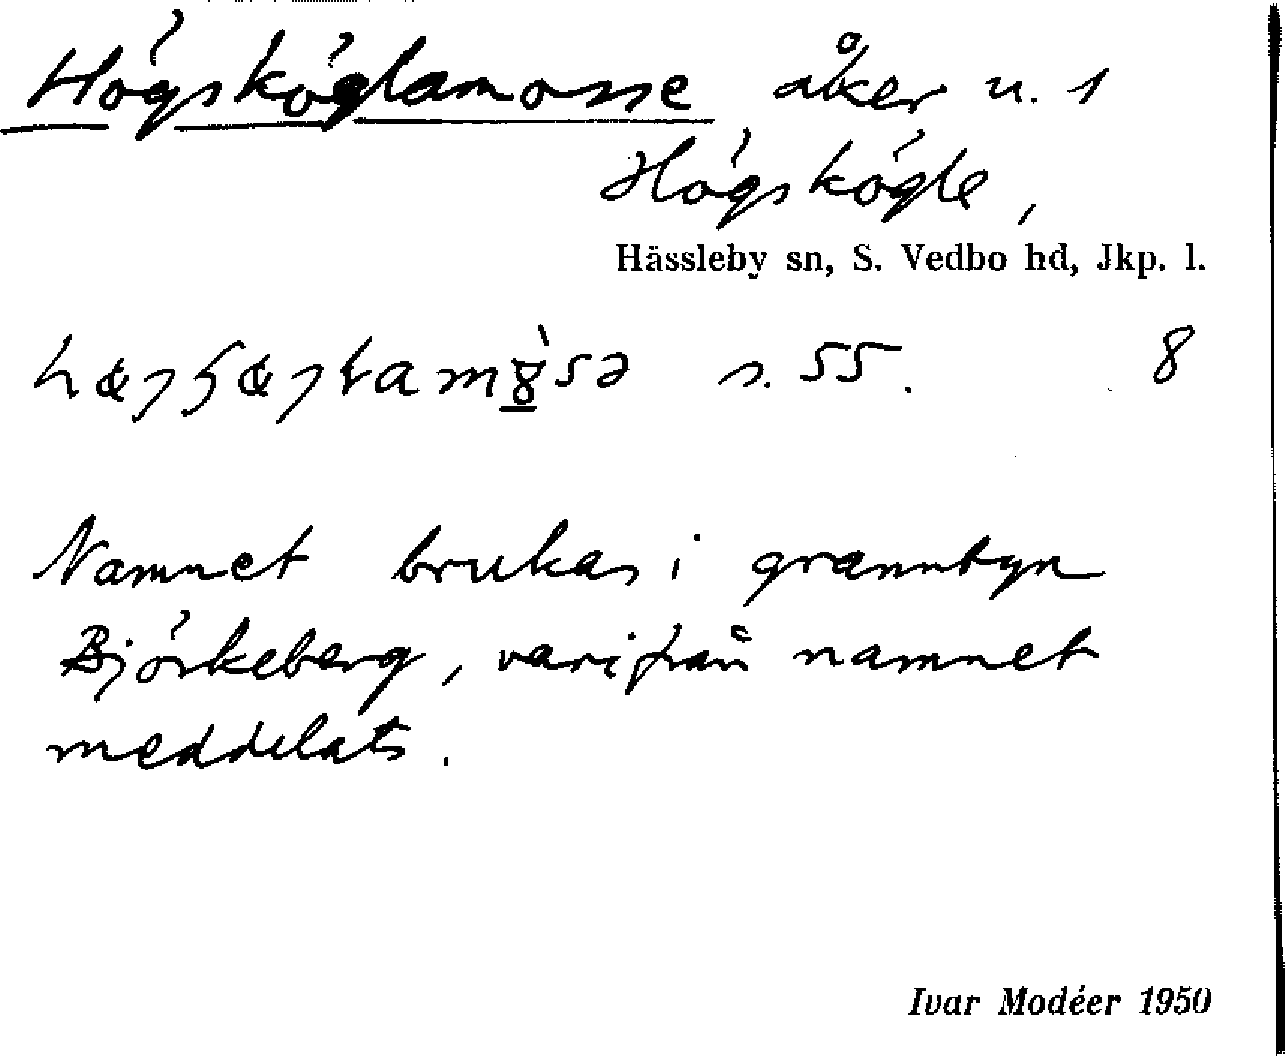 Högsköglamosse åker u. 1
Högskögle,
Hässleby sn, S. Vedbo hd, Jkp. l.
s. 55. 8
Namnet brukas i grannbyn
Björkeberg, varifrån namnet
meddelats.
Ivar Modéer 1950